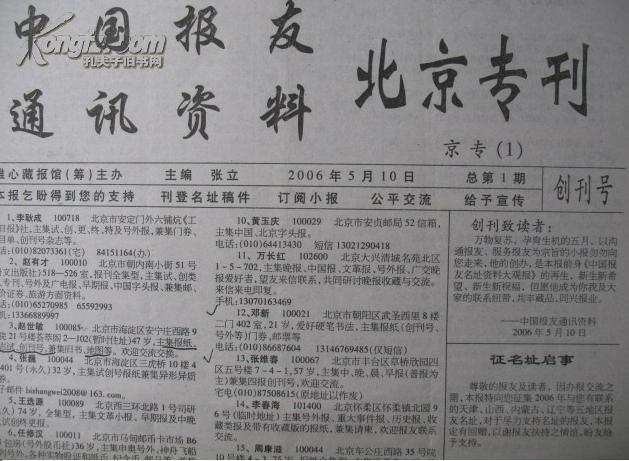 中国报友
通讯资料
北京专刊
京专(1)
Kongfz.com
孔夫子旧书网
雅心藏报馆(筹)主办 主编 张立 2006年5月10日 总第1期 创刊号
本报乞盼得到您的支持 刊登名址稿件 订阅小报 公平交流 给予宣传
1、李耿成 100718 北京市安定门外六铺炕《工
日报》社,主集试、创、更、终、特及号外报,兼集门券、
目录、创刊号杂志等。
电话:(010)82073361(宅) 84151164(办)
2、赵有才 010010 北京市朝内南小街51号
518—526室,报刊全集型,主集试、创类
专、号外及广电报,早期报、中国字头报,兼集邮、
价证券、旅游方面资料。
电话:(010)65270985 65592993
机:13366889997
3、赵世敏 100085 北京市海淀区安宁庄西路9
院21号楼荟萃阁2—102(暂时住址)47岁,主集报纸、
起试、创刊号,兼集旧书、地图等。欢迎交流交换。
4、张巍 100044 北京市海淀区三虎桥10楼4
401号(永久)32岁,主集试创号报纸兼集异形异质
子邮件 bizhangwei2008@163.com。
5、王选源 100089 北京西三环北路1号司研
(永久)74岁,全集型,主集文革小报、早期报及中晚
6、任修汉 100011 北京市马甸邮币卡市场B6
10、黄玉庆 100029 北京市安贞邮局52信箱,
主集中国、北京字头报。
电话:(010)64413430 短信13021290418
11、万长红 102600 北京大兴清城名苑北区
1-5-702,主集晚报、中国报、文革报,号外报、广交晚
报爱好者,望友来信联系,共同研讨晚报收藏与交流。
来信来电即复。
手机:13070163469
12、邓新 100021 北京市朝阳区武圣西里8楼
二门402室,21岁,爱好硬笔书法,主集报纸(创刊号、
号外等)门券、邮票等
电话:(010)86687604 13146769485(仅短信)
13、张维春 100067 北京市丰台区草桥欣园四
区五号楼7-4-1,57岁,主集中、晚、晨、早报(普报为
主)兼集四报创刊号,欢迎交流。
电宅(010)87508615(原地址以作废)
14、李春海 101400 北京怀柔区怀柔镇北园96
号(临时地址)主集号外报、重大事件报、历史报,收
藏类报及带有收藏版的报纸,兼集请柬,欢迎报友联系
交流。
15、周康滋 100044 北京车公庄西路35号院
创刊致读者:
万物复苏,孕育生机的五月,以沟
通报友,服务报友为宗旨的小报匆匆向
您走来,他的创办,是本报前身《中国报
友名址资料大观报》的再生,新生新希
望,新生新祝福,但愿他成为你我及大
家的联系纽带,共丰藏品,同兴报业。
——中国报友通讯资料
2006年5月10日
征名址启事
尊敬的报友及读者,因办报交流之
需,本报特向您征集2006年与您有联系
的天津、山西、内蒙古、辽宁等五地区报
友名址,对于尽力支持名址的报友,本报
定有回赠,以谢报友扶持之情谊,盼友给
予支持。